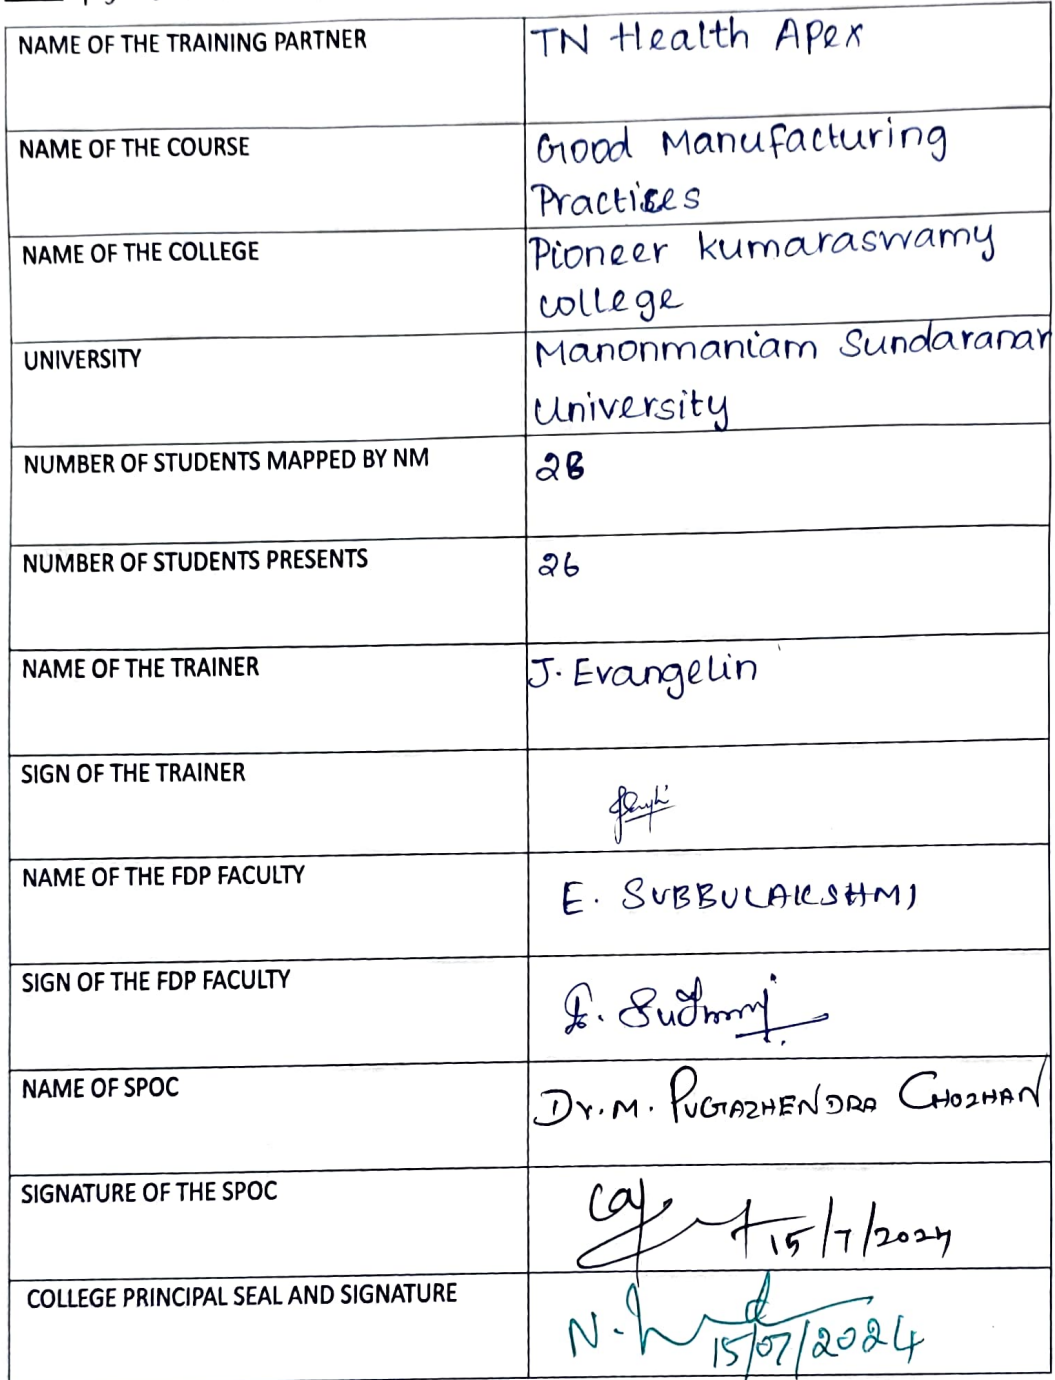 NAME OF THE TRAINING PARTNER
TN Health Apex
NAME OF THE COURSE
Good Manufacturing
Practices
NAME OF THE COLLEGE
Pioneer kumaraswamy
college
UNIVERSITY
Manonmaniam Sundaranar
University
NUMBER OF STUDENTS MAPPED BY NM
28
NUMBER OF STUDENTS PRESENTS
26
NAME OF THE TRAINER
J. Evangelin
SIGN OF THE TRAINER
NAME OF THE FDP FACULTY
E. SUBBULAKSHMI
SIGN OF THE FDP FACULTY
NAME OF SPOC
Dr. M. PUGAZHENDRA CHOZHAN
SIGNATURE OF THE SPOC
15/7/2024
COLLEGE PRINCIPAL SEAL AND SIGNATURE
15/07/2024